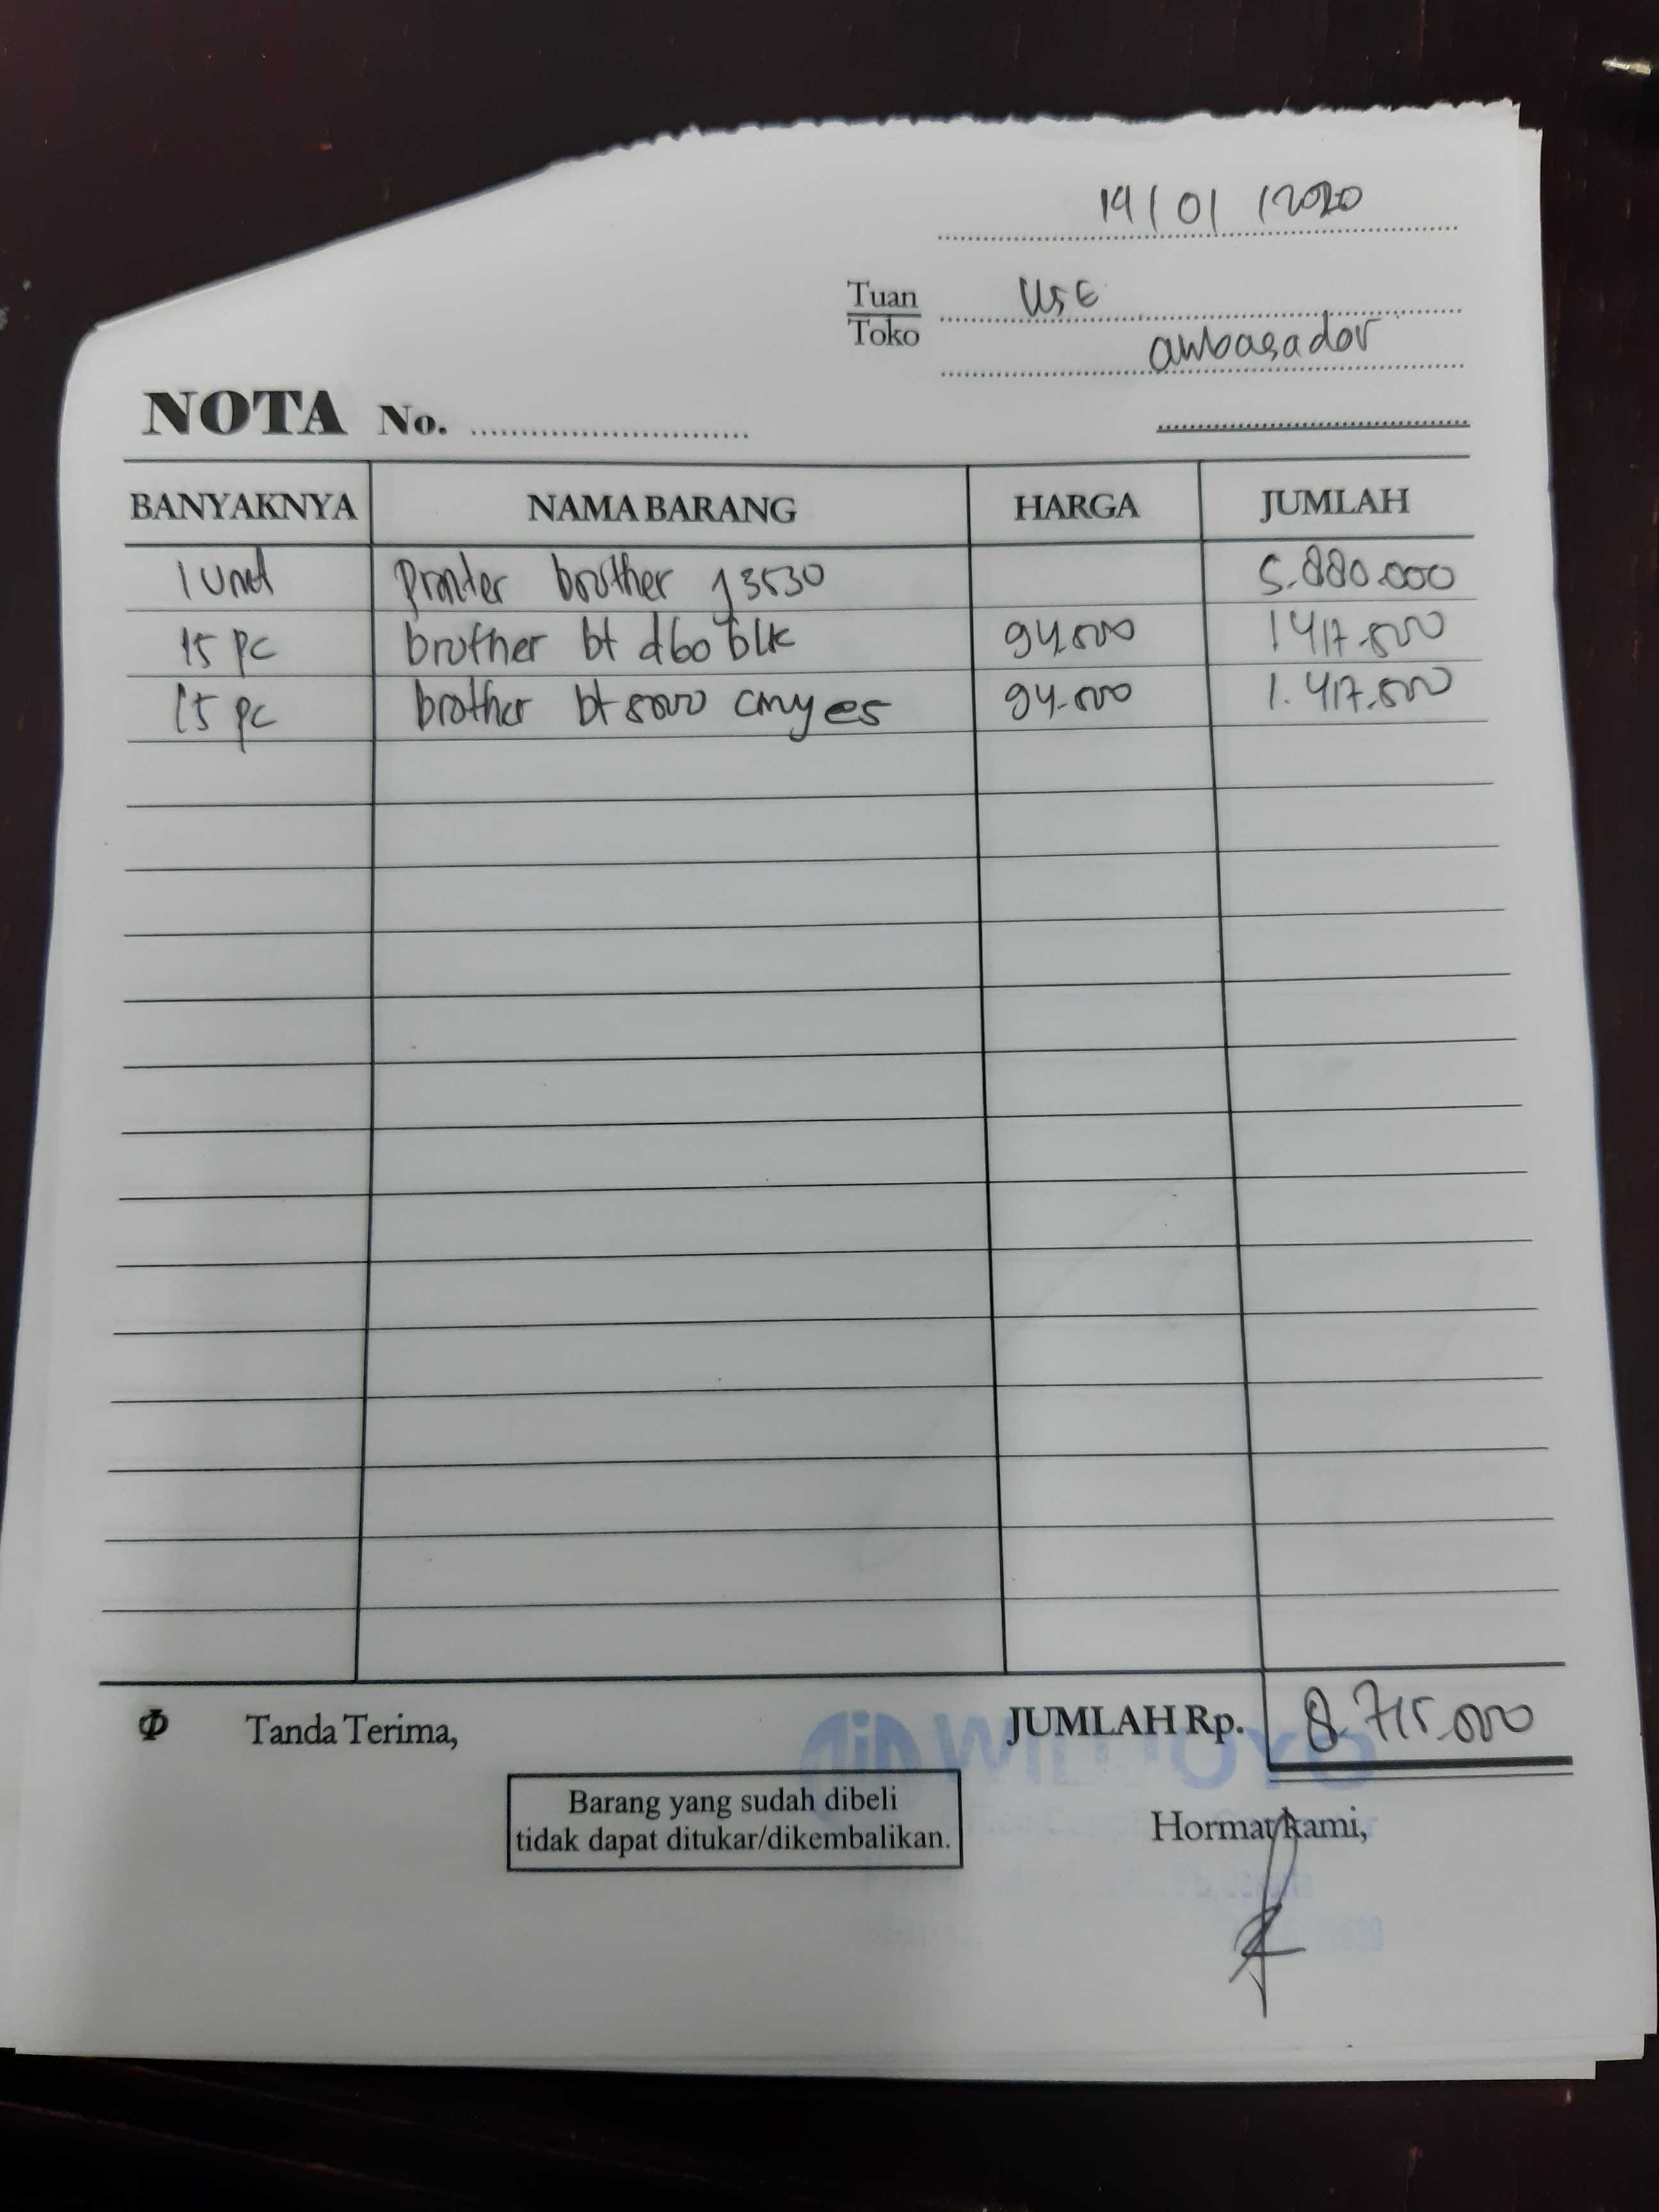 14/01/2020
Tuan
Toko
USE
ambasador
NOTA No.
BANYAKNYA NAMA BARANG HARGA JUMLAH
1 Unit Printer brother j3530 5.880.000
15 pc brother bt d60 blk 94.500 1417.500
15 pc brother bt 5000 cmy es 94.500 1.417.500
Φ Tanda Terima, JUMLAH Rp. 8.715.000
Barang yang sudah dibeli
tidak dapat ditukar/dikembalikan.
Hormat kami,